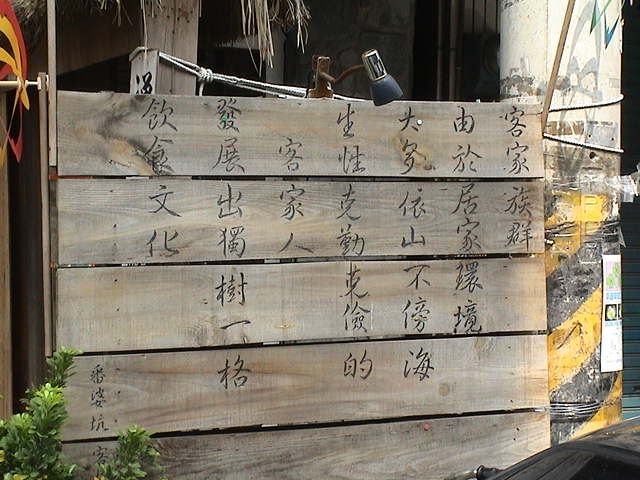 客家族群
由於居家環境
大多依山不傍海
生性克勤克儉的
客家人
發展出獨樹一格
飲食文化
番婆坑客